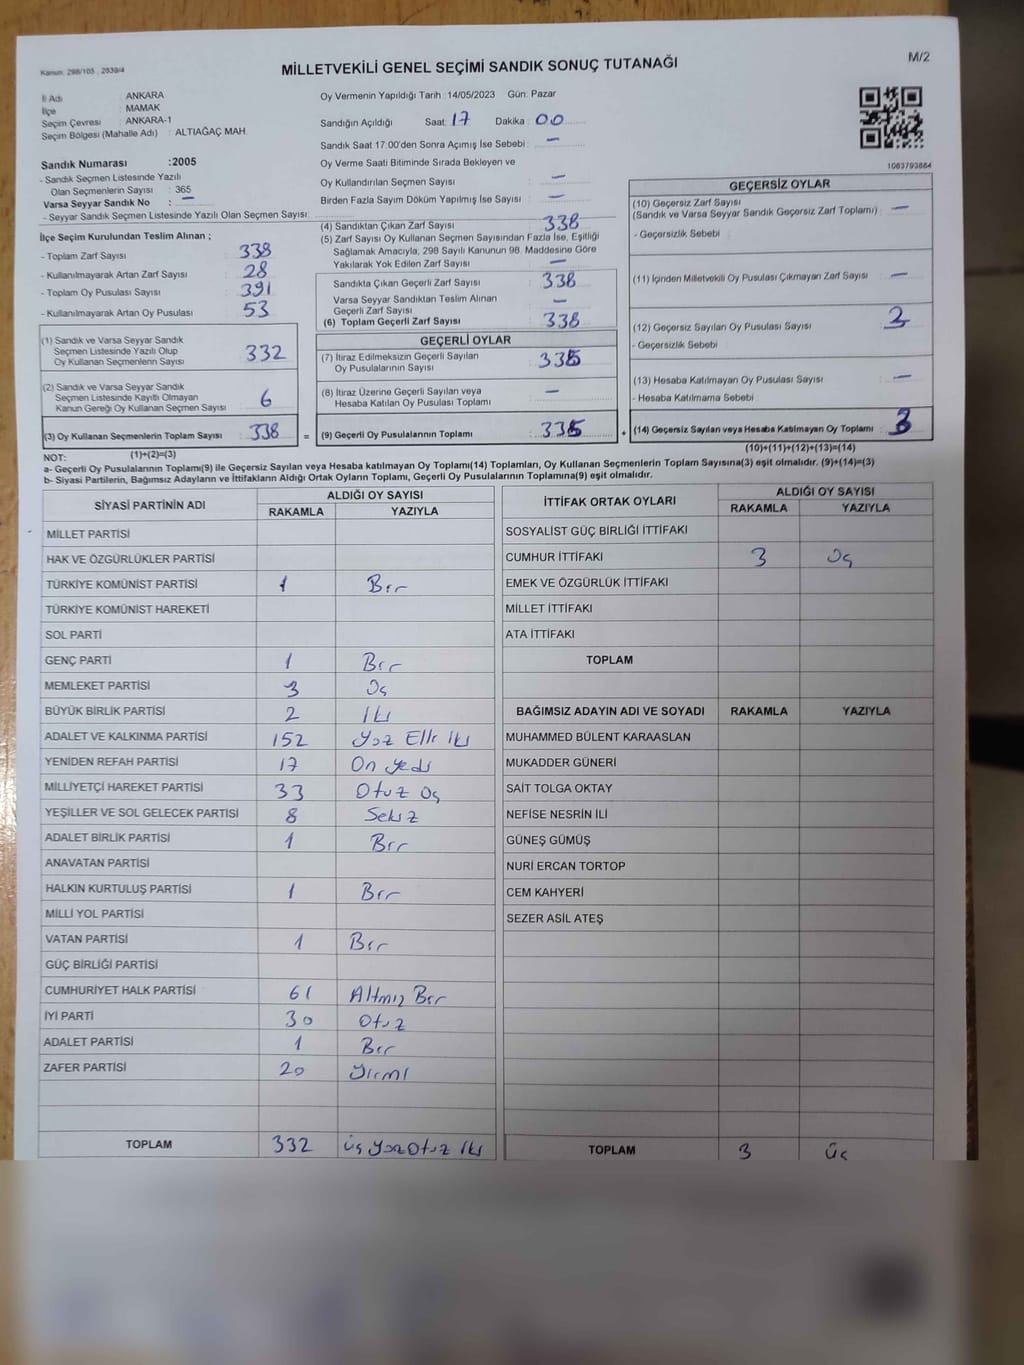 Kanun: 298/105 , 2839/4
MİLLETVEKİLİ GENEL SEÇİMİ SANDIK SONUÇ TUTANAĞI
M/2
İl Adı : ANKARA
İlçe : MAMAK
Seçim Çevresi : ANKARA-1
Seçim Bölgesi (Mahalle Adı) : ALTIAĞAÇ MAH.
Oy Vermenin Yapıldığı Tarih :14/05/2023 Gün: Pazar
Sandığın Açıldığı Saat: 17 Dakika : 00
Sandık Saat 17:00'den Sonra Açımış İse Sebebi : —
Oy Verme Saati Bitiminde Sırada Bekleyen ve
Oy Kullandırılan Seçmen Sayısı : —
Birden Fazla Sayım Döküm Yapılmış İse Sayısı : —
1063793864
Sandık Numarası :2005
- Sandık Seçmen Listesinde Yazılı
Olan Seçmenlerin Sayısı : 365
Varsa Seyyar Sandık No : —
- Seyyar Sandık Seçmen Listesinde Yazılı Olan Seçmen Sayısı:
İlçe Seçim Kurulundan Teslim Alınan ;
- Toplam Zarf Sayısı : 338
- Kullanılmayarak Artan Zarf Sayısı : 28
- Toplam Oy Pusulası Sayısı : 391
- Kullanılmayarak Artan Oy Pusulası : 53
(1) Sandık ve Varsa Seyyar Sandık
Seçmen Listesinde Yazılı Olup
Oy Kullanan Seçmenlerin Sayısı : 332
(2) Sandık ve Varsa Seyyar Sandık
Seçmen Listesinde Kayıtlı Olmayan
Kanun Gereği Oy Kullanan Seçmen Sayısı : 6
(3) Oy Kullanan Seçmenlerin Toplam Sayısı : 338 =
(1)+(2)=(3)
(4) Sandıktan Çıkan Zarf Sayısı : 338
(5) Zarf Sayısı Oy Kullanan Seçmen Sayısından Fazla İse, Eşitliği
Sağlamak Amacıyla, 298 Sayılı Kanunun 98. Maddesine Göre
Yakılarak Yok Edilen Zarf Sayısı : —
Sandıkta Çıkan Geçerli Zarf Sayısı : 338
Varsa Seyyar Sandıktan Teslim Alınan
Geçerli Zarf Sayısı : —
(6) Toplam Geçerli Zarf Sayısı : 338
GEÇERLİ OYLAR
(7) İtiraz Edilmeksizin Geçerli Sayılan
Oy Pusulalarının Sayısı : 335
(8) İtiraz Üzerine Geçerli Sayılan veya
Hesaba Katılan Oy Pusulası Toplamı : —
(9) Geçerli Oy Pusulalarının Toplamı : 335 +
GEÇERSİZ OYLAR
(10) Geçersiz Zarf Sayısı
(Sandık ve Varsa Seyyar Sandık Geçersiz Zarf Toplamı) : —
- Geçersizlik Sebebi :
(11) İçinden Milletvekili Oy Pusulası Çıkmayan Zarf Sayısı : —
(12) Geçersiz Sayılan Oy Pusulası Sayısı : 3
- Geçersizlik Sebebi :
(13) Hesaba Katılmayan Oy Pusulası Sayısı : —
- Hesaba Katılmama Sebebi :
(14) Geçersiz Sayılan veya Hesaba Katılmayan Oy Toplamı : 3
(10)+(11)+(12)+(13)=(14)
NOT:
a- Geçerli Oy Pusulalarının Toplamı(9) ile Geçersiz Sayılan veya Hesaba katılmayan Oy Toplamı(14) Toplamları, Oy Kullanan Seçmenlerin Toplam Sayısına(3) eşit olmalıdır. (9)+(14)=(3)
b- Siyasi Partilerin, Bağımsız Adayların ve İttifakların Aldığı Ortak Oyların Toplamı, Geçerli Oy Pusulalarının Toplamına(9) eşit olmalıdır.
SİYASİ PARTİNİN ADI ALDIĞI OY SAYISI
RAKAMLA YAZIYLA
MİLLET PARTİSİ
HAK VE ÖZGÜRLÜKLER PARTİSİ
TÜRKİYE KOMÜNİST PARTİSİ 1 Bir
TÜRKİYE KOMÜNİST HAREKETİ
SOL PARTİ
GENÇ PARTİ 1 Bir
MEMLEKET PARTİSİ 3 Üç
BÜYÜK BİRLİK PARTİSİ 2 İki
ADALET VE KALKINMA PARTİSİ 152 Yüz Elli iki
YENİDEN REFAH PARTİSİ 17 On yedi
MİLLİYETÇİ HAREKET PARTİSİ 33 Otuz Üç
YEŞİLLER VE SOL GELECEK PARTİSİ 8 Sekiz
ADALET BİRLİK PARTİSİ 1 Bir
ANAVATAN PARTİSİ
HALKIN KURTULUŞ PARTİSİ 1 Bir
MİLLİ YOL PARTİSİ
VATAN PARTİSİ 1 Bir
GÜÇ BİRLİĞİ PARTİSİ
CUMHURİYET HALK PARTİSİ 61 Altmış Bir
İYİ PARTİ 30 Otuz
ADALET PARTİSİ 1 Bir
ZAFER PARTİSİ 20 Yirmi
TOPLAM 332 üç yüz Otuz iki
İTTİFAK ORTAK OYLARI ALDIĞI OY SAYISI
RAKAMLA YAZIYLA
SOSYALİST GÜÇ BİRLİĞİ İTTİFAKI
CUMHUR İTTİFAKI 3 Üç
EMEK VE ÖZGÜRLÜK İTTİFAKI
MİLLET İTTİFAKI
ATA İTTİFAKI
TOPLAM
BAĞIMSIZ ADAYIN ADI VE SOYADI RAKAMLA YAZIYLA
MUHAMMED BÜLENT KARAASLAN
MUKADDER GÜNERİ
SAİT TOLGA OKTAY
NEFİSE NESRİN İLİ
GÜNEŞ GÜMÜŞ
NURİ ERCAN TORTOP
CEM KAHYERİ
SEZER ASİL ATEŞ
TOPLAM 3 üç